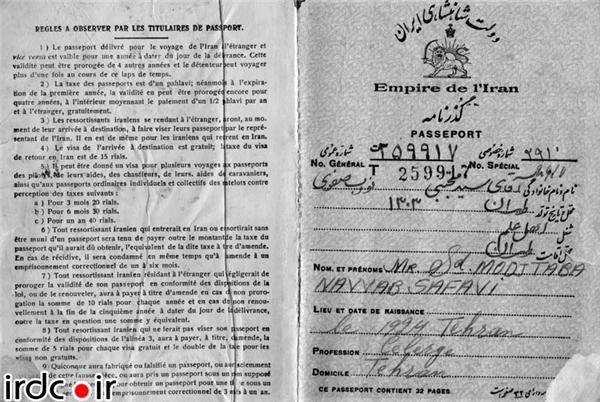 REGLES A OBSERVER PAR LES TITULAIRES DE PASSPORT.
1 ) Le passeport délivré pour le voyage de l'Iran à l'étranger et
vice versa est valable pour une année à dater du jour de la délivrance. Cette
validité peut être prorogée de 4 autres années et le détenteur peut voyager
plus d'une fois au cours de ce laps de temps.
2 ) La taxe des passeports est d'un pahlavi; néanmoins à l'expira-
tion de la première année, la validité en peut être prorogée encore pour
quatre années, à l'intérieur moyennant le paiement d'un 1/2 pahlavi par an
et à l'étranger, gratuitement.
3 ) Les ressortissants iraniens se rendant à l'étranger, auront, au mo-
ment de leur arrivée à destination, à faire viser leurs passeport par le repré-
sentant de l'Iran. Il en est de même pour les iraniens qui rentrent en Iran.
4 ) Le visa de l'arrivée à destination est gratuit; la taxe du visa
de retour en Iran est de 15 rials.
5 ) Il peut être donné un visa pour plusieurs voyages aux passeports
des pilotes, de leurs aides, des chauffeurs, de leurs, aides de caravaniers,
ainsi qu'aux passeports ordinaires individuels et collectifs des matelots contre
perception des taxes suivants :
a ) Pour 3 mois 20 rials.
b ) Pour 6 mois 30 rials.
c ) Pour un an 40 rials.
6 ) Tout ressortissant iranien qui entrerait en Iran ou en sortirait sans
être muni d'un passeport sera tenu de payer outre le montant de la taxe du
passeport qu'il aurait dû obtenir, l'équivalent de la dite taxe à titre d'amende.
En cas de récidive, il sera condamné en même temps qu'à amende à un
emprisonnement correctionnel de un à six mois.
7 ) Tout ressortissant iranien résidant à l'étranger qui négligerait de
proroger la validité de son passeport en conformité des dispositions de la
loi, ou de le renouveler, aura à payer à titre d'amende en cas de non proro-
gation la somme de 10 rials pour chaque année et en cas de non renou-
vellement à la fin de la cinquième année à dater du jour de la délivrance,
outre la taxe en question une somme y équivalent.
8 ) Tout ressortissant Iranien qui ne ferait pas viser son passeport en
conformité des dispositions de l'alinéa 3, aura à payer, à titre, d'amende, la
somme de 5 rials pour chaque visa gratuit et le double de la taxe pour les
visas non gratuits.
9) Quiconque aura fabriqué ou falsifié un passeport, ou aura sciemment
irdc.ir
دولت شاهنشاهی ایران
Empire de l'Iran
گذرنامه
PASSEPORT
شماره عمومی ۲۵۹۹۱۷ شماره خصوصی
No. GÉNÉRAL No. SPÉCIAL
نام و نام خانوادگی آقای سید مجتبی نواب صفوی
محل و تاریخ تولد طهران ۱۳۰۳
شغل
محل اقامت طهران
NOM, ET PRÉNOMS Mr. MODJTABA
NAVVAB SAFAVI
LIEU ET DATE DE NAISSANCE
1924 Tehran
PROFESSION
DOMICILE Tehran
CE PASSEPORT CONTIENT 32 PAGES